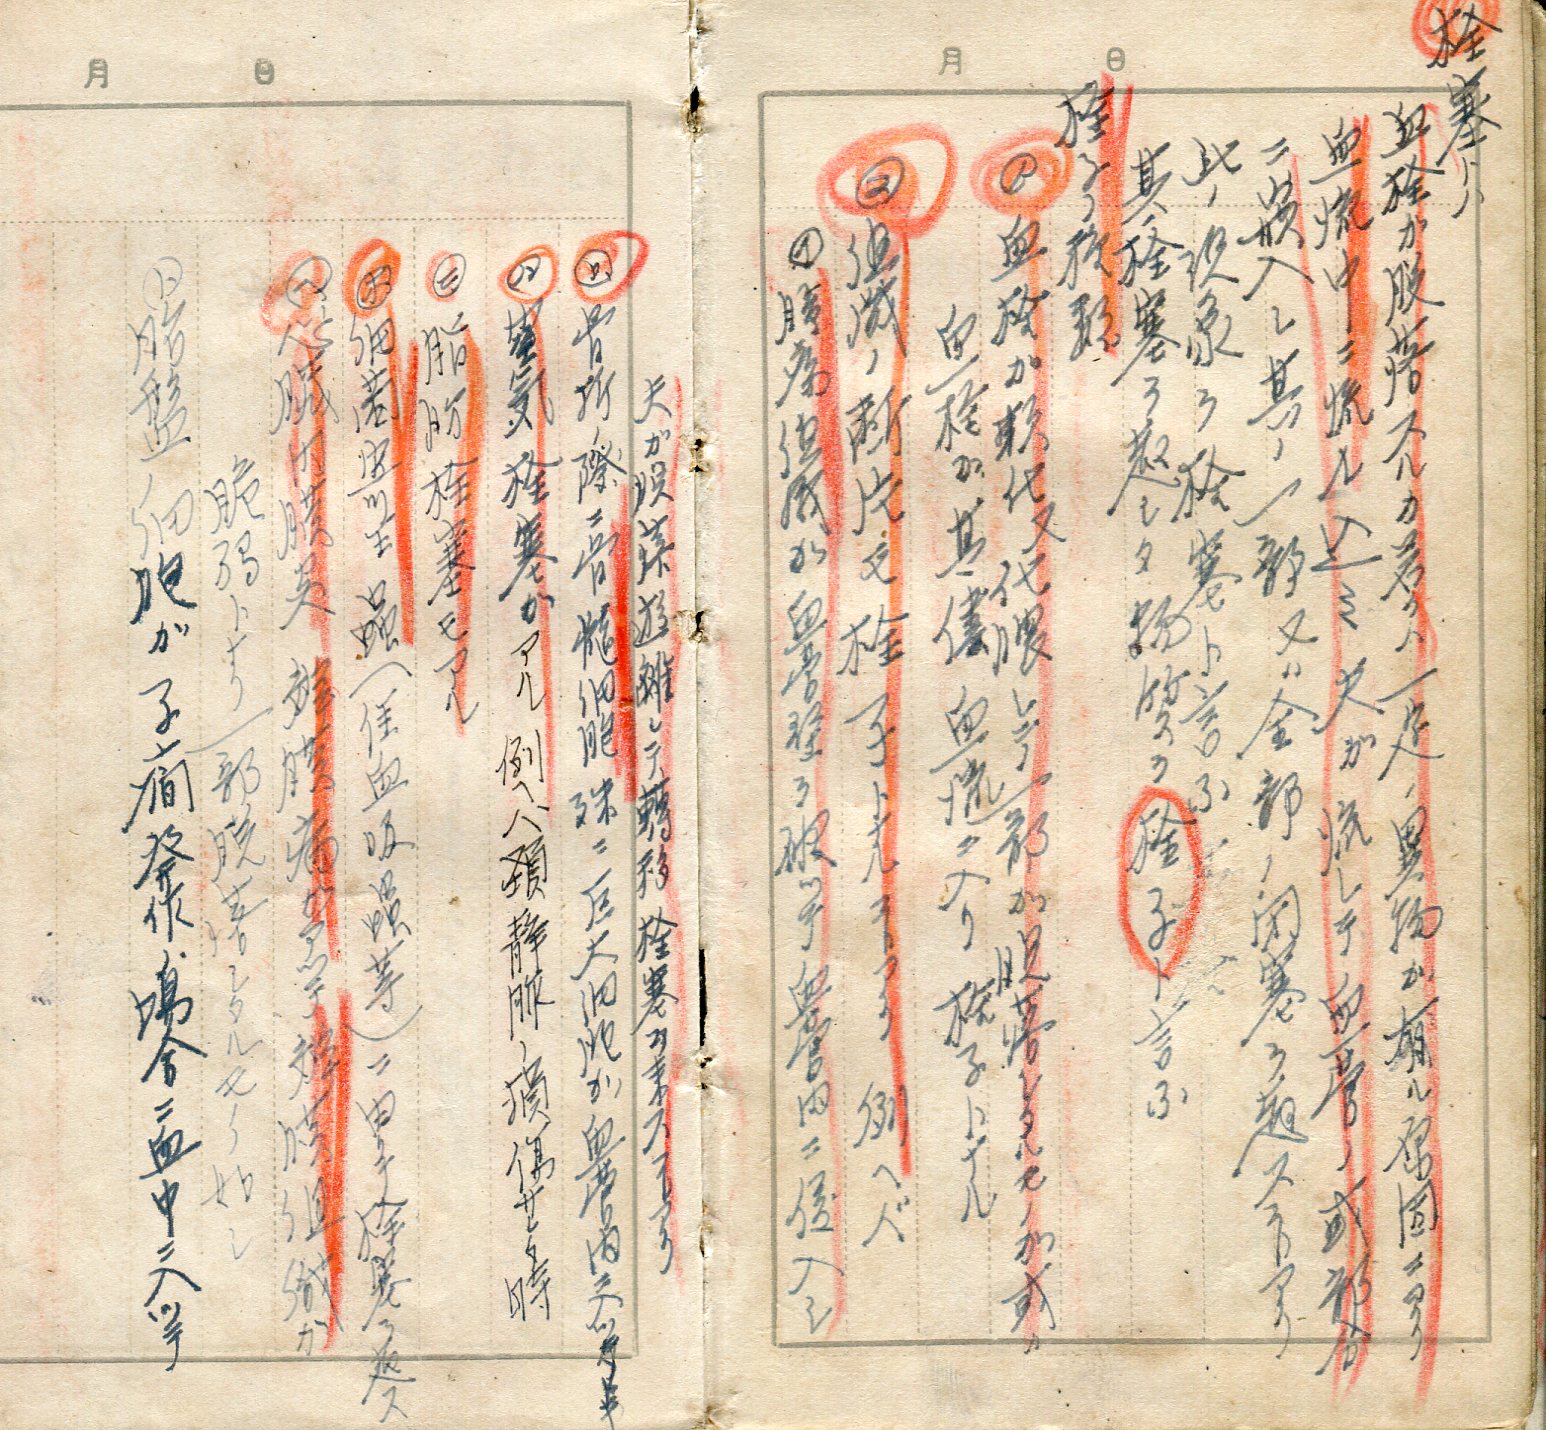 月 日
栓塞トハ
血栓ガ脱落スルカ若クハ一定ノ異物ガ有ル原因ニヨリ
血流中ニ流レ込ミ 夫ガ流レテ血管ノ或部分
ニ嵌入シ其ノ一部又ハ全部ノ閉塞ヲ起スコトアリ
此ノ現象ヲ栓塞ト言ふ
其ノ栓塞ヲ起シタ物質ヲ栓子ト言ふ
栓子ノ種類
① 血栓ガ軟化又ハ化膿シテ一部ガ脱落シタルモノカ或ハ
血栓ガ其儘血流ニ入リ栓子トナル
② 組織ノ断片モ栓子トナルコトアリ 例ヘバ
イ 腫瘍組織ガ血管壁ヲ破ツテ血管内ニ侵入シ
月 日
夫ガ後遊離シテ轉移栓塞ヲ来スコトアリ
ロ 骨折ノ際ニ骨髄細胞殊ニ巨大細胞ガ血管内ニ入ツテ来
ハ 空気栓塞ガアル 例ヘバ頚静脈ノ損傷セル時
ニ 脂肪栓塞モアル
ホ 細菌寄生蟲(住血吸蟲等)ニ由テ栓塞ヲ起ス
ヘ 心臓内膜炎 瓣膜病ニ於テ瓣膜組織ガ
脆弱トナリ一部脱落シタルモノノ如シ
ト 胎盤ノ細胞ガ子癇発作ノ場合ニ血中ニ入ツテ